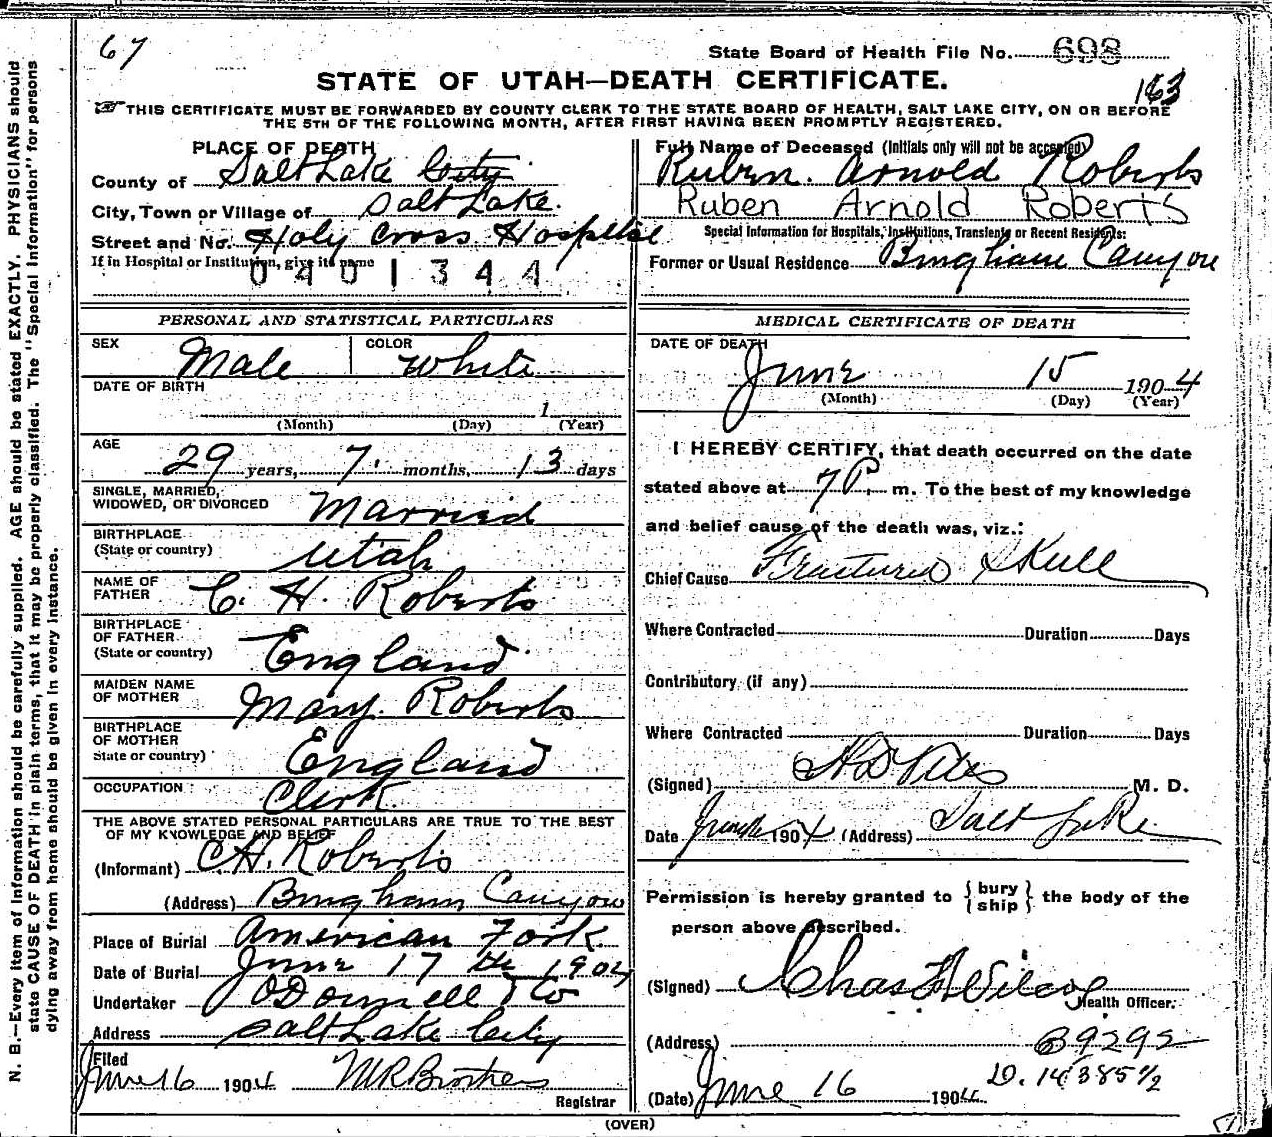 67
State Board of Health File No. 698
STATE OF UTAH—DEATH CERTIFICATE.
163
THIS CERTIFICATE MUST BE FORWARDED BY COUNTY CLERK TO THE STATE BOARD OF HEALTH, SALT LAKE CITY, ON OR BEFORE
THE 5TH OF THE FOLLOWING MONTH, AFTER FIRST HAVING BEEN PROMPTLY REGISTERED.
PLACE OF DEATH
County of Salt Lake City
City, Town or Village of Salt Lake.
Street and No. Holy Cross Hospital
If in Hospital or Institution, give its name
0401344
Full Name of Deceased (Initials only will not be accepted)
Ruben. Arnold Roberts
Ruben Arnold Roberts
Special Information for Hospitals, Institutions, Transients or Recent Residents:
Former or Usual Residence Bingham Canyon
PERSONAL AND STATISTICAL PARTICULARS
SEX Male COLOR White
DATE OF BIRTH
1
(Month) (Day) (Year)
AGE
29 years, 7. months, 13 days
SINGLE, MARRIED,
WIDOWED, OR DIVORCED Married
BIRTHPLACE
(State or country) Utah
NAME OF
FATHER C. H. Roberts
BIRTHPLACE
OF FATHER
(State or country) England
MAIDEN NAME
OF MOTHER Mary. Roberts
BIRTHPLACE
OF MOTHER
State or country) England
OCCUPATION Clerk.
THE ABOVE STATED PERSONAL PARTICULARS ARE TRUE TO THE BEST
OF MY KNOWLEDGE AND BELIEF
(Informant) C.H. Roberts
(Address) Bingham Canyon
Place of Burial American Fork
Date of Burial June 17th 1904
Undertaker O'Donnell & Co
Address Salt Lake City
Filed
June 16 1904
Registrar
MEDICAL CERTIFICATE OF DEATH
DATE OF DEATH
June 15 1904
(Month) (Day) (Year)
I HEREBY CERTIFY, that death occurred on the date
stated above at 7 P. m. To the best of my knowledge
and belief cause of the death was, viz.:
Chief Cause Fractured Skull
Where Contracted Duration Days
Contributory (if any)
Where Contracted Duration Days
(Signed) M. D.
Date June 1904 (Address) Salt Lake
Permission is hereby granted to { bury
ship } the body of the
person above described.
(Signed) Chas Wilcox
Health Officer.
(Address) B9292
D. 14385½
(Date) June 16 1904
(OVER)
N. B.—Every item of information should be carefully supplied. AGE should be stated EXACTLY. PHYSICIANS should
state CAUSE OF DEATH in plain terms, that it may be properly classified. The "Special Information" for persons
dying away from home should be given in every instance.